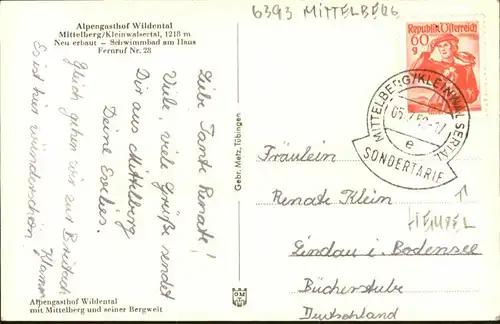 6393 MITTELBERG
Alpengasthof Wildental
Mittelberg/Kleinwalsertal, 1218 m
Neu erbaut – Schwimmbad am Haus
Fernruf Nr. 28
Republik Österreich
60
g
MITTELBERG/KLEINWALSERTAL
e
SONDERTARIF
Liebe Tante Renate!
Viele, viele Grüße sendet
Dir aus Mittelberg
Deine Evelies.
Gleich gehen wir zur
Es ist hier wunderschön.
Gebr. Metz, Tübingen
Fräulein
Renate Klein
HEMPEL
Lindau i. Bodensee
Bücherstube
Deutschland
Alpengasthof Wildental
mit Mittelberg und seiner Bergwelt